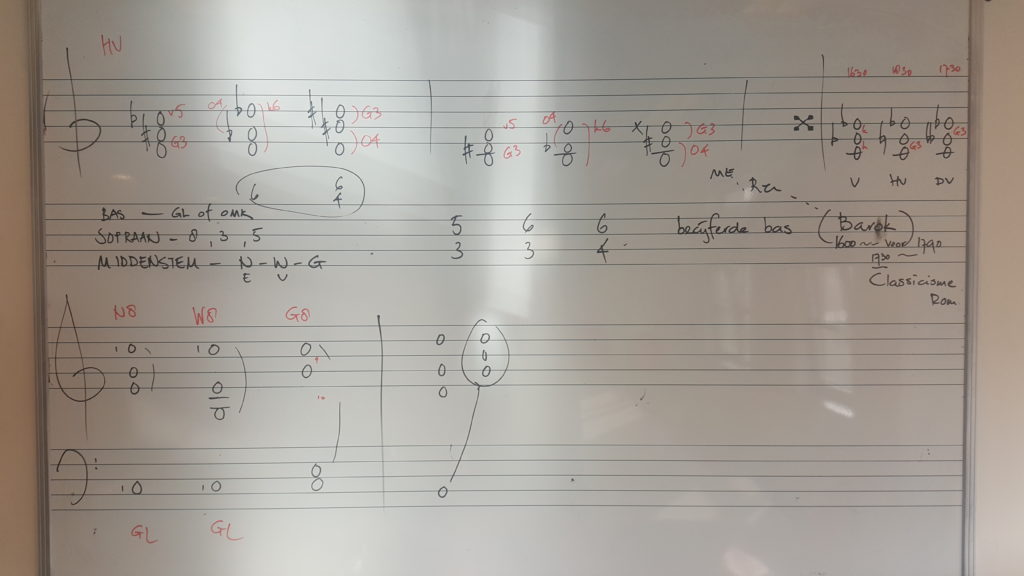 HV
1630 1730
v5 G3 O4 G3 O4
v5 G3 O4 G3 O4 G3 G3
V HV DV
ME
6 6
4
BAS — GL of OMK
SOPRAAN – 8, 3, 5
MIDDENSTEM – N – W – G
E V
5 6 6
3 3 4
becyferde bas (Barok)
1600 1790
1730
Classicisme
Rom
N8 W8 G8
GL GL